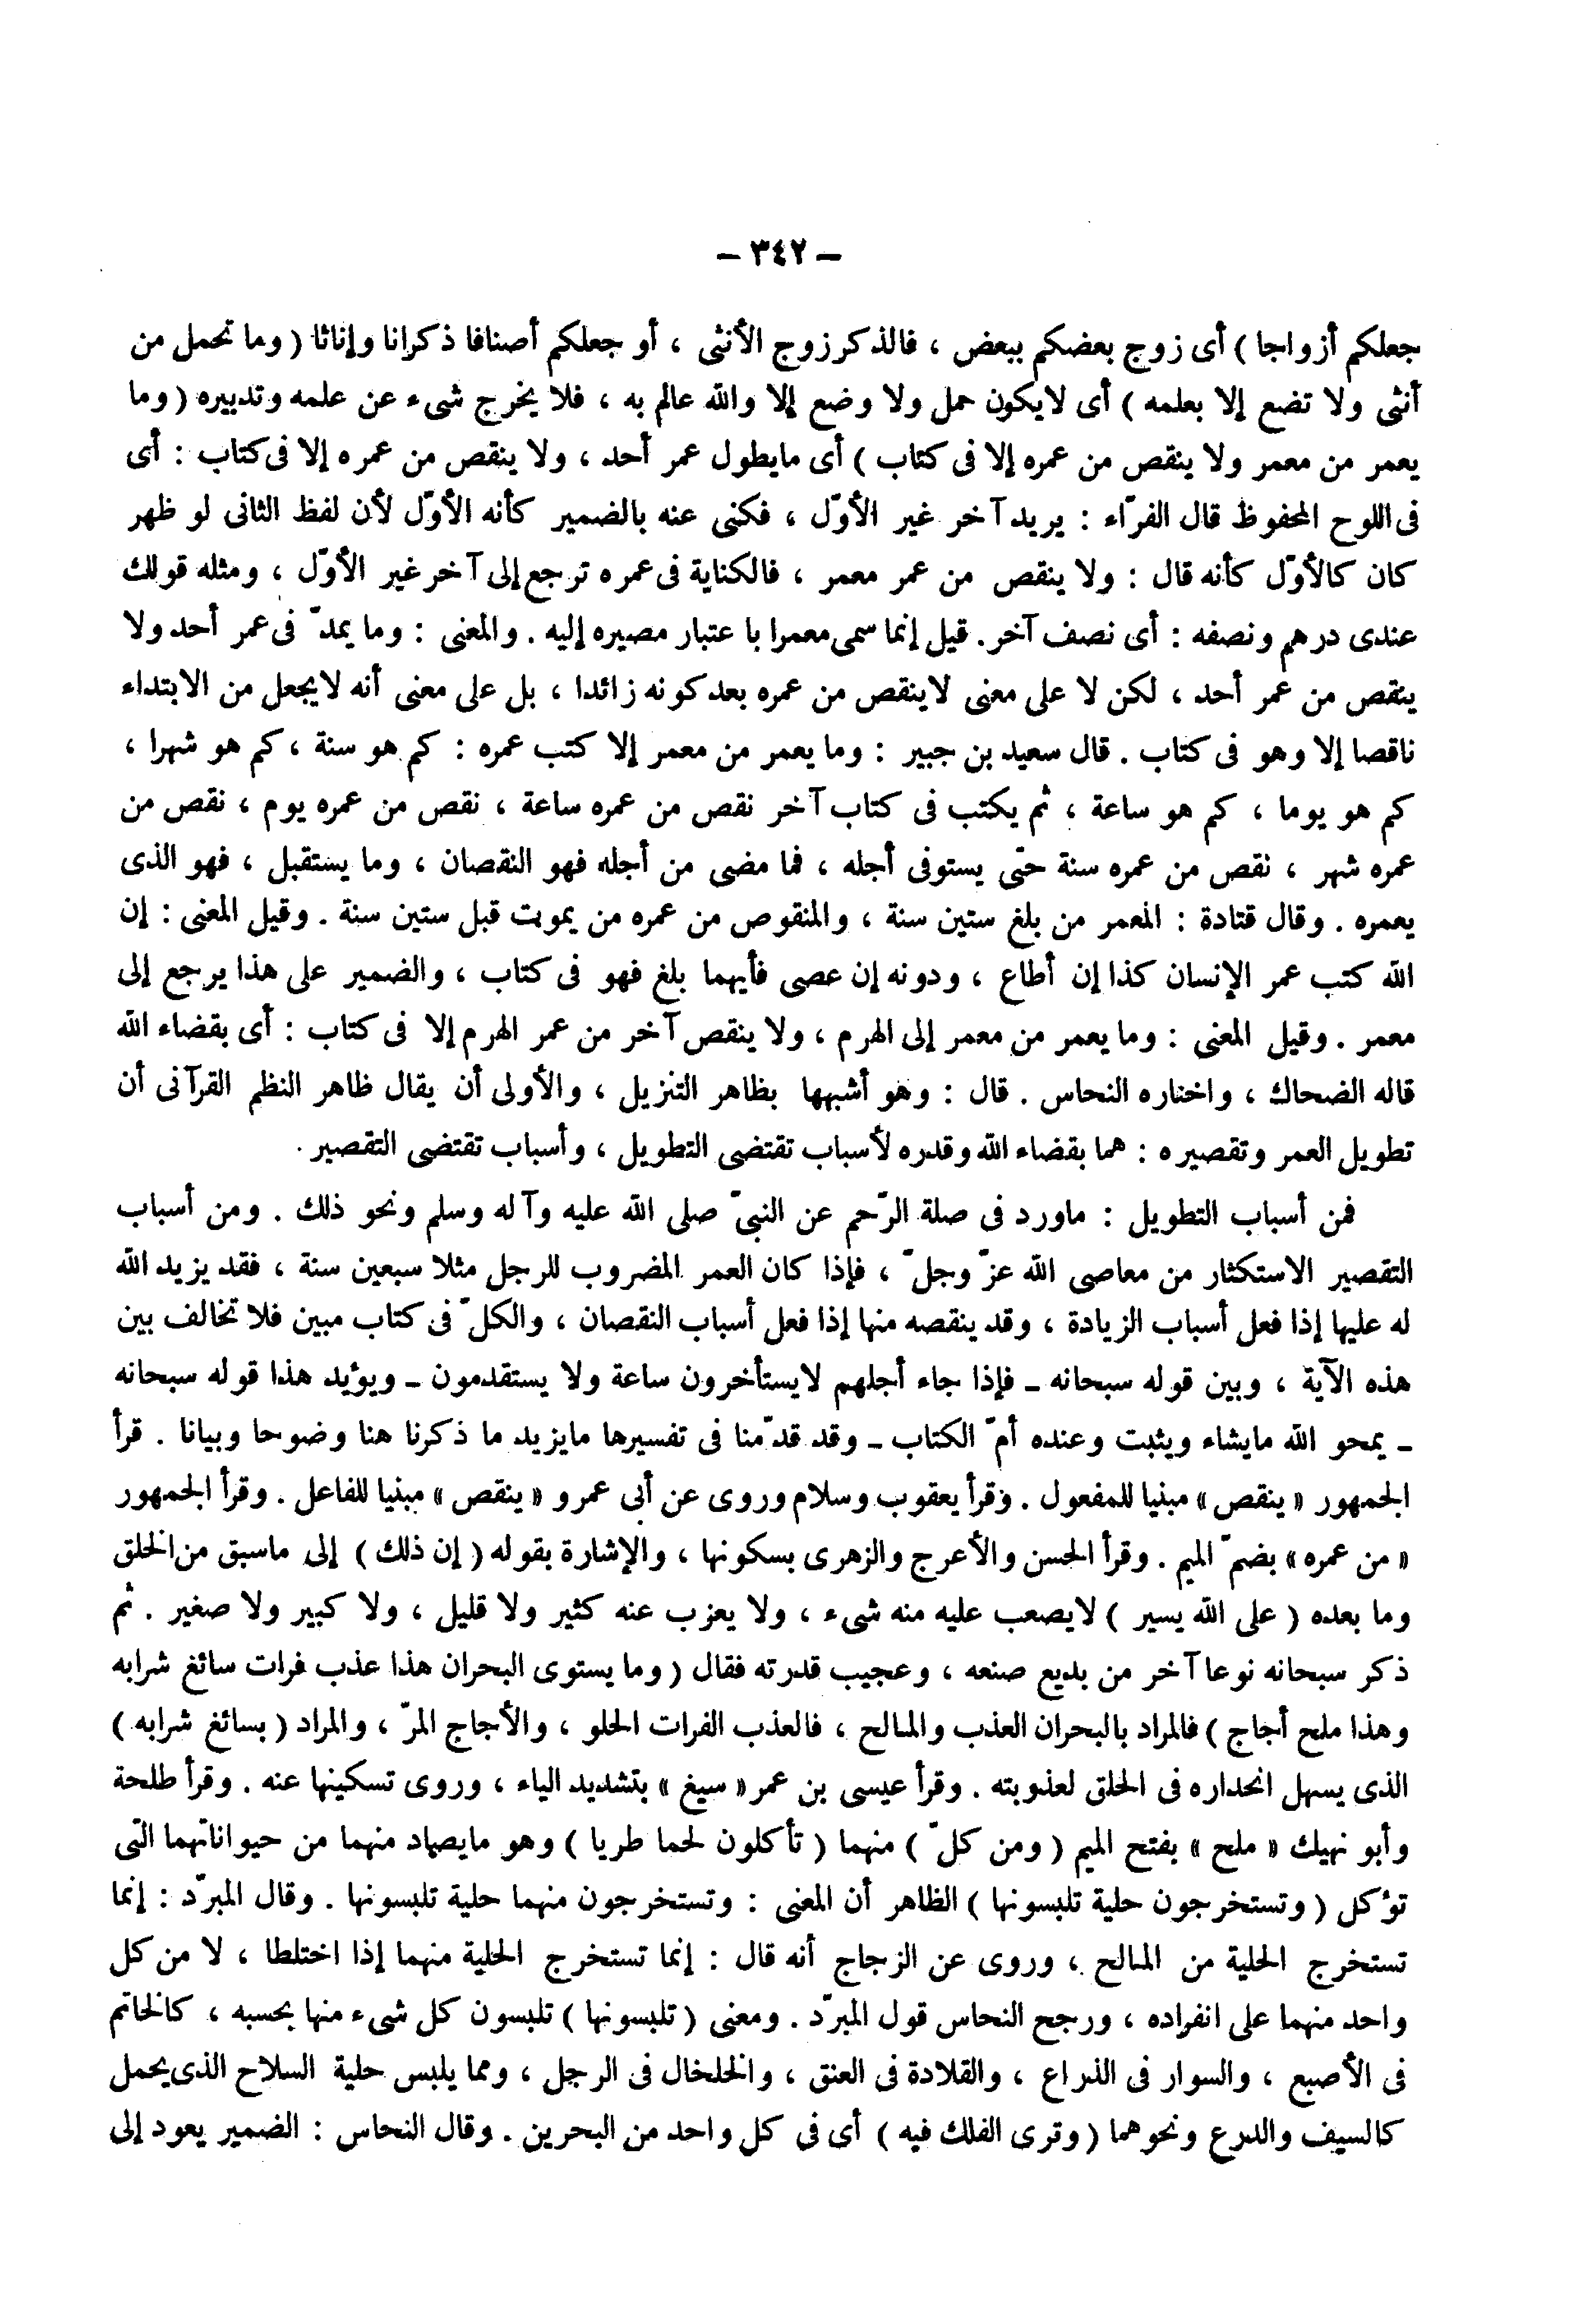 – ٣٤٢ –
جعلكم أزواجا ) أى زوج بعضكم ببعض ، فالذكر زوج الأنثى ، أو جعلكم أصنافا ذكرانا وإناثا ( وما تحمل من
أنثى ولا تضع إلا بعلمه ) أى لايكون حمل ولا وضع إلا والله عالم به ، فلا يخرج شىء عن علمه وتدبيره ( وما
يعمر من معمر ولا ينقص من عمره إلا فى كتاب ) أى مايطول عمر أحد ، ولا ينقص من عمره إلا فى كتاب : أى
فى اللوح المحفوظ قال الفرّاء : يريد آخر غير الأوّل ، فكنى عنه بالضمير كأنه الأوّل لأن لفظ الثانى لو ظهر
كان كالأوّل كأنه قال : ولا ينقص من عمر معمر ، فالكناية فى عمره ترجع إلى آخر غير الأوّل ، ومثله قولك
عندى درهم ونصفه : أى نصف آخر . قيل إنما سمى معمرا باعتبار مصيره إليه . والمعنى : وما يمدّ فى عمر أحد ولا
ينقص من عمر أحد ، لكن لا على معنى لاينقص من عمره بعد كونه زائدا ، بل على معنى أنه لايجعل من الابتداء
ناقصا إلا وهو فى كتاب . قال سعيد بن جبير : وما يعمر من معمر إلا كتب عمره : كم هو سنة ، كم هو شهرا ،
كم هو يوما ، كم هو ساعة ، ثم يكتب فى كتاب آخر نقص من عمره ساعة ، نقص من عمره يوم ، نقص من
عمره شهر ، نقص من عمره سنة حتى يستوفى أجله ، فما مضى من أجله فهو النقصان ، وما يستقبل ، فهو الذى
يعمره . وقال قتادة : المعمر من بلغ ستين سنة ، والمنقوص من عمره من يموت قبل ستين سنة . وقيل المعنى : إن
الله كتب عمر الإنسان كذا إن أطاع ، ودونه إن عصى فأيهما بلغ فهو فى كتاب ، والضمير على هذا يرجع إلى
معمر . وقيل المعنى : وما يعمر من معمر إلى الهرم ، ولا ينقص آخر من عمر الهرم إلا فى كتاب : أى بقضاء الله
قاله الضحاك ، واختاره النحاس . قال : وهو أشبهها بظاهر التنزيل ، والأولى أن يقال ظاهر النظم القرآنى أن
تطويل العمر وتقصيره : هما بقضاء الله وقدره لأسباب تقتضى التطويل ، وأسباب تقتضى التقصير .
فمن أسباب التطويل : ماورد فى صلة الرّحم عن النبىّ صلى الله عليه وآله وسلم ونحو ذلك . ومن أسباب
التقصير الاستكثار من معاصى الله عزّ وجلّ ، فإذا كان العمر المضروب للرجل مثلا سبعين سنة ، فقد يزيد الله
له عليها إذا فعل أسباب الزيادة ، وقد ينقصه منها إذا فعل أسباب النقصان ، والكلّ فى كتاب مبين فلا تخالف بين
هذه الآية ، وبين قوله سبحانه ـ فإذا جاء أجلهم لايستأخرون ساعة ولا يستقدمون ـ ويؤيد هذا قوله سبحانه
ـ يمحو الله مايشاء ويثبت وعنده أمّ الكتاب ـ وقد قدّمنا فى تفسيرها مايزيد ما ذكرنا هنا وضوحا وبيانا . قرأ
الجمهور « ينقص » مبنيا للمفعول . وقرأ يعقوب وسلام وروى عن أبى عمرو « ينقص » مبنيا للفاعل . وقرأ الجمهور
« من عمره » بضمّ الميم . وقرأ الحسن والأعرج والزهرى بسكونها ، والإشارة بقوله ( إن ذلك ) إلى ماسبق من الخلق
وما بعده ( على الله يسير ) لايصعب عليه منه شىء ، ولا يعزب عنه كثير ولا قليل ، ولا كبير ولا صغير . ثم
ذكر سبحانه نوعا آخر من بديع صنعه ، وعجيب قدرته فقال ( وما يستوى البحران هذا عذب فرات سائغ شرابه
وهذا ملح أجاج ) فالمراد بالبحران العذب والمالح ، فالعذب الفرات الحلو ، والأجاج المرّ ، والمراد ( بسائغ شرابه )
الذى يسهل انحداره فى الحلق لعذوبته . وقرأ عيسى بن عمر « سيغ » بتشديد الياء ، وروى تسكينها عنه . وقرأ طلحة
وأبو نهيك « ملح » بفتح الميم ( ومن كلّ ) منهما ( تأكلون لحما طريا ) وهو مايصاد منهما من حيواناتهما التى
تؤكل ( وتستخرجون حلية تلبسونها ) الظاهر أن المعنى : وتستخرجون منهما حلية تلبسونها . وقال المبرّد : إنما
تستخرج الحلية من المالح ، وروى عن الزجاج أنه قال : إنما تستخرج الحلية منهما إذا اختلطا ، لا من كل
واحد منهما على انفراده ، ورجح النحاس قول المبرّد . ومعنى ( تلبسونها ) تلبسون كل شىء منها بحسبه ، كالخاتم
فى الأصبع ، والسوار فى الذراع ، والقلادة فى العنق ، والخلخال فى الرجل ، ومما يلبس حلية السلاح الذى يحمل
كالسيف والدرع ونحوهما ( وترى الفلك فيه ) أى فى كل واحد من البحرين . وقال النحاس : الضمير يعود إلى